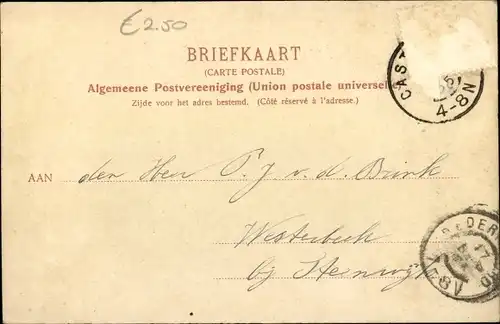 €2.50
BRIEFKAART
(CARTE POSTALE)
Algemeene Postvereeniging (Union postale universelle)
Zijde voor het adres bestemd. (Côté réservé à l'adresse.)
CAST
4-8N
AAN den Heer P. J. v. d. Brink
Westerbeek
bij Steenwijk